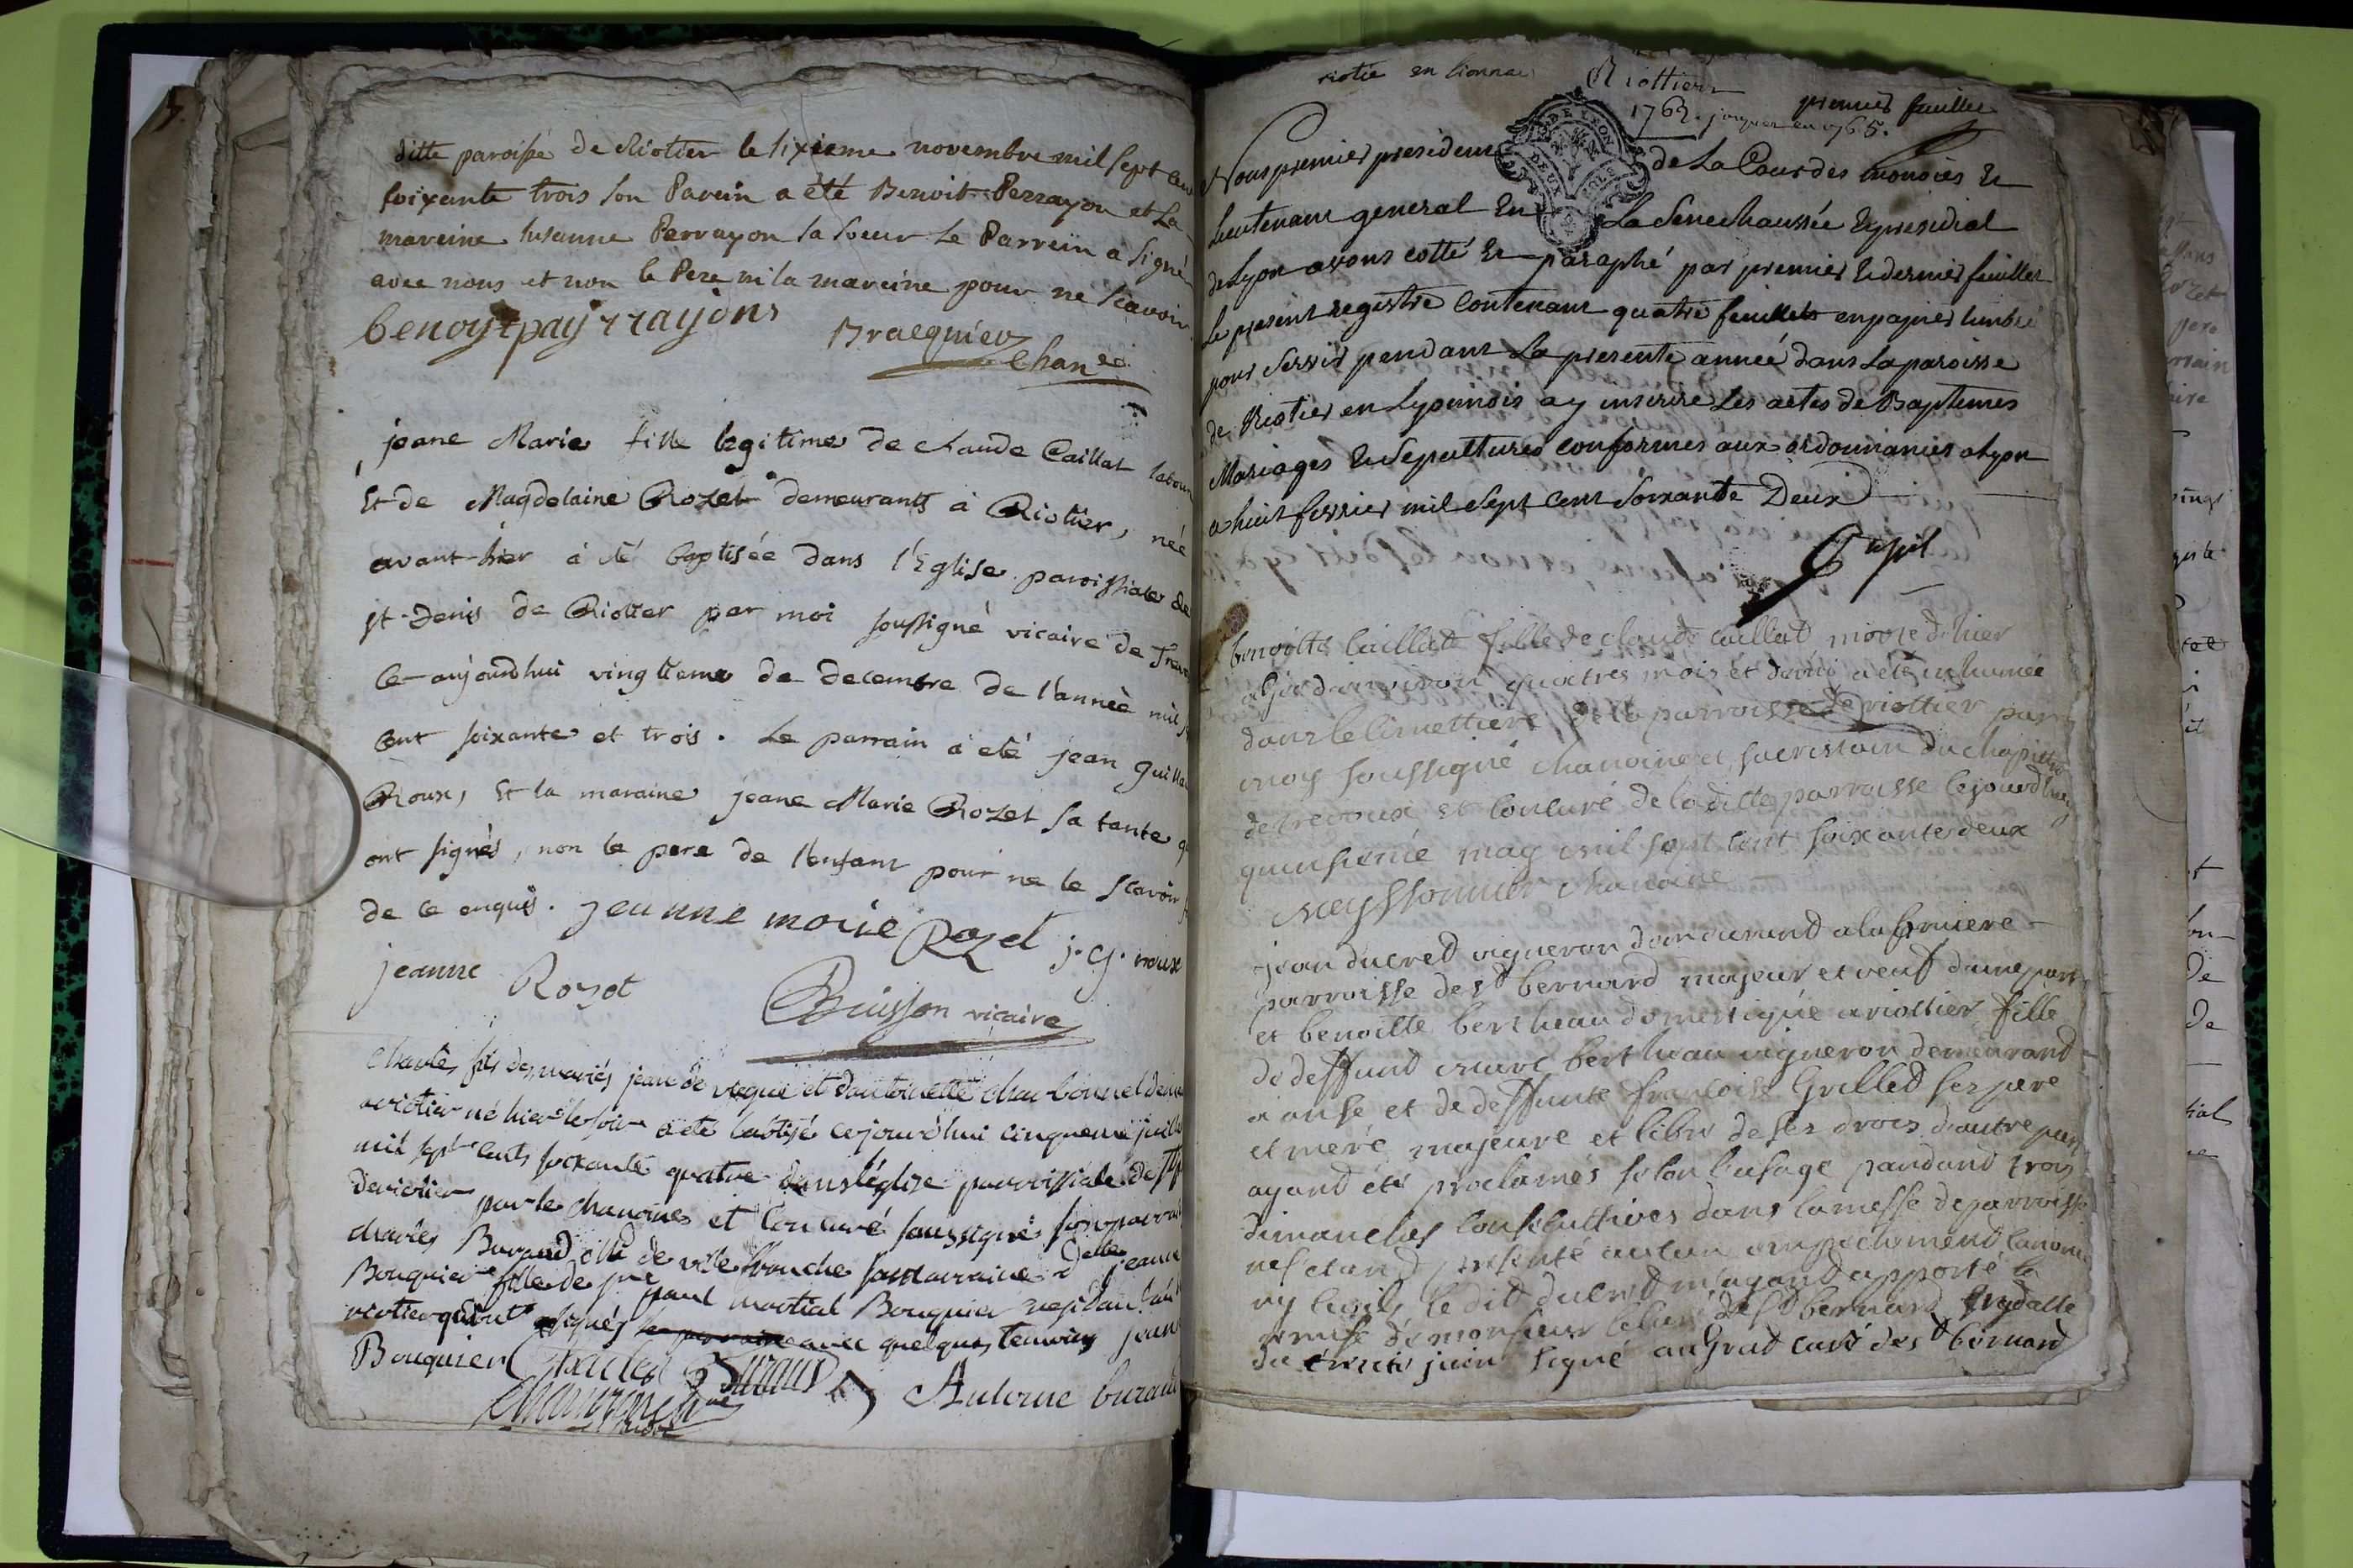 ditte paroisse de Riotier le sixieme novembre mil sept cen
soixante trois son Parein a été Benoit Perrayon et La
mareine susanne Perrayon sa soeur Le Parrein a signé
avec nous et non le Pere ni la mareine pour ne scavoir
benoyt payrrayons
Chan
jeane Marie fille legitime de claude Caillat labour
Et de Magdelaine Rozet demeurants à Riottier, née
avant-hier à été baptisée dans l'Eglise paroissiale de
st-Denis de Riotter par moi soussigné vicaire de Trev
Ce-aujourdhui vingtieme de decembre de l'année mil s
cent soixante et trois. Le parrain à eté jean guilla
Roux, Et la maraine jeane Marie Rozet sa tante q
ont signés, non le pere de l'enfant pour ne le scavoir
de ce enquis. jeanne marie Rozet j. g. roux
jeanne Rozet
Buisson vicaire
Charles fils des mariés jean de et dantoinette charbonnel deme
ariotier né hier le soir a été batisé cejourd'hui cinquieme juill
mil sept cents soixante quatre dans l'église parroissiale de st
deriotier par le chanoines et Concuré soussigné son parrai
charles Buraud de ville franche sa marraine delle jeanne
Bouquier fille de paul martial Bouquier residant au
riotier qui ont signés avec quelques temoins jean
Bouquier Charles Buraud Antoine burau
riotie en lionnai Riottier
1762. jusques en 1765. premier feuillet
Nous premier president de La Cour des monoies Et
Lieutenant general En La Senechaussée Et presidial
de Lyon avons cotté Et paraphé par premier Et dernier feuillet
Le present registre Contenant quatre feuillets en papier timbré
pour servir pendant La presente année dans La paroisse
de Riotier en Lyonnois a y inscrire Les actes de Baptemes
Mariages Et Sepultures conformes aux ordonnances a Lyon
a huit fevrier mil sept cent soixante Deux
Pupil
benoitte Caillatt fille de claude caillat morte d'hier
agée d'anviron quatres mois et demi a été inhumée
dans le cimettiere de la parroisse de riottier par
moy soussigné chanoine et sacristain du chapittre
de trevoux et Concuré de la ditte parroisse Cejourdhuy
quinsieme may mil sept cent soixante deux
meyssonnier chanoine
jean ducret vigneron demeurand a la
parroisse de st bernard majeur et veuf d'une part
et benoitte bertheau domestique a riottier fille
de deffund marc bertheau vigneron demeurand
a anse et de deffunte francoise Grilled ses pere
et mere majeure et libre de ses drois d'autre part
ayand été proclamés selon l'usage pandand trois
dimanches Consecuttives dans la messe de parroisse
nes'etand presenté aucun ampechemend canoniq
ny Civils le dit ducret m'ayand apporté la
remise de monsieur le curé de st bernard
du trente juin signé augrad curé de st bernard